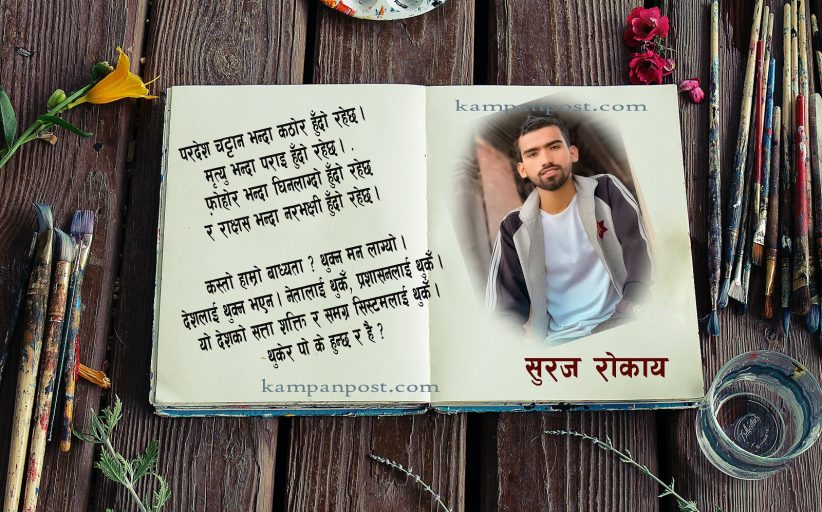 परदेश चट्टान भन्दा कठोर हुँदो रहेछ।
मृत्यु भन्दा पराइ हुँदो रहेछ।.
फ़ोहोर भन्दा घिनलाग्दो हुँदो रहेछ
र राक्षस भन्दा नरभक्षी हुँदो रहेछ।
कस्तो हाम्रो बाध्यता ? थुक्न मन लाग्यो।
देशलाई थुक्न भएन। नेतालाई थुकेँ, प्रशासनलाई थुकेँ।
यो देशको सत्ता शक्ति र समग्र सिस्टमलाई थुकेँ।
थुकेर पो के हुन्छ र है ?
kampanpost.com
kampanpost.com
सुरज रोकाय